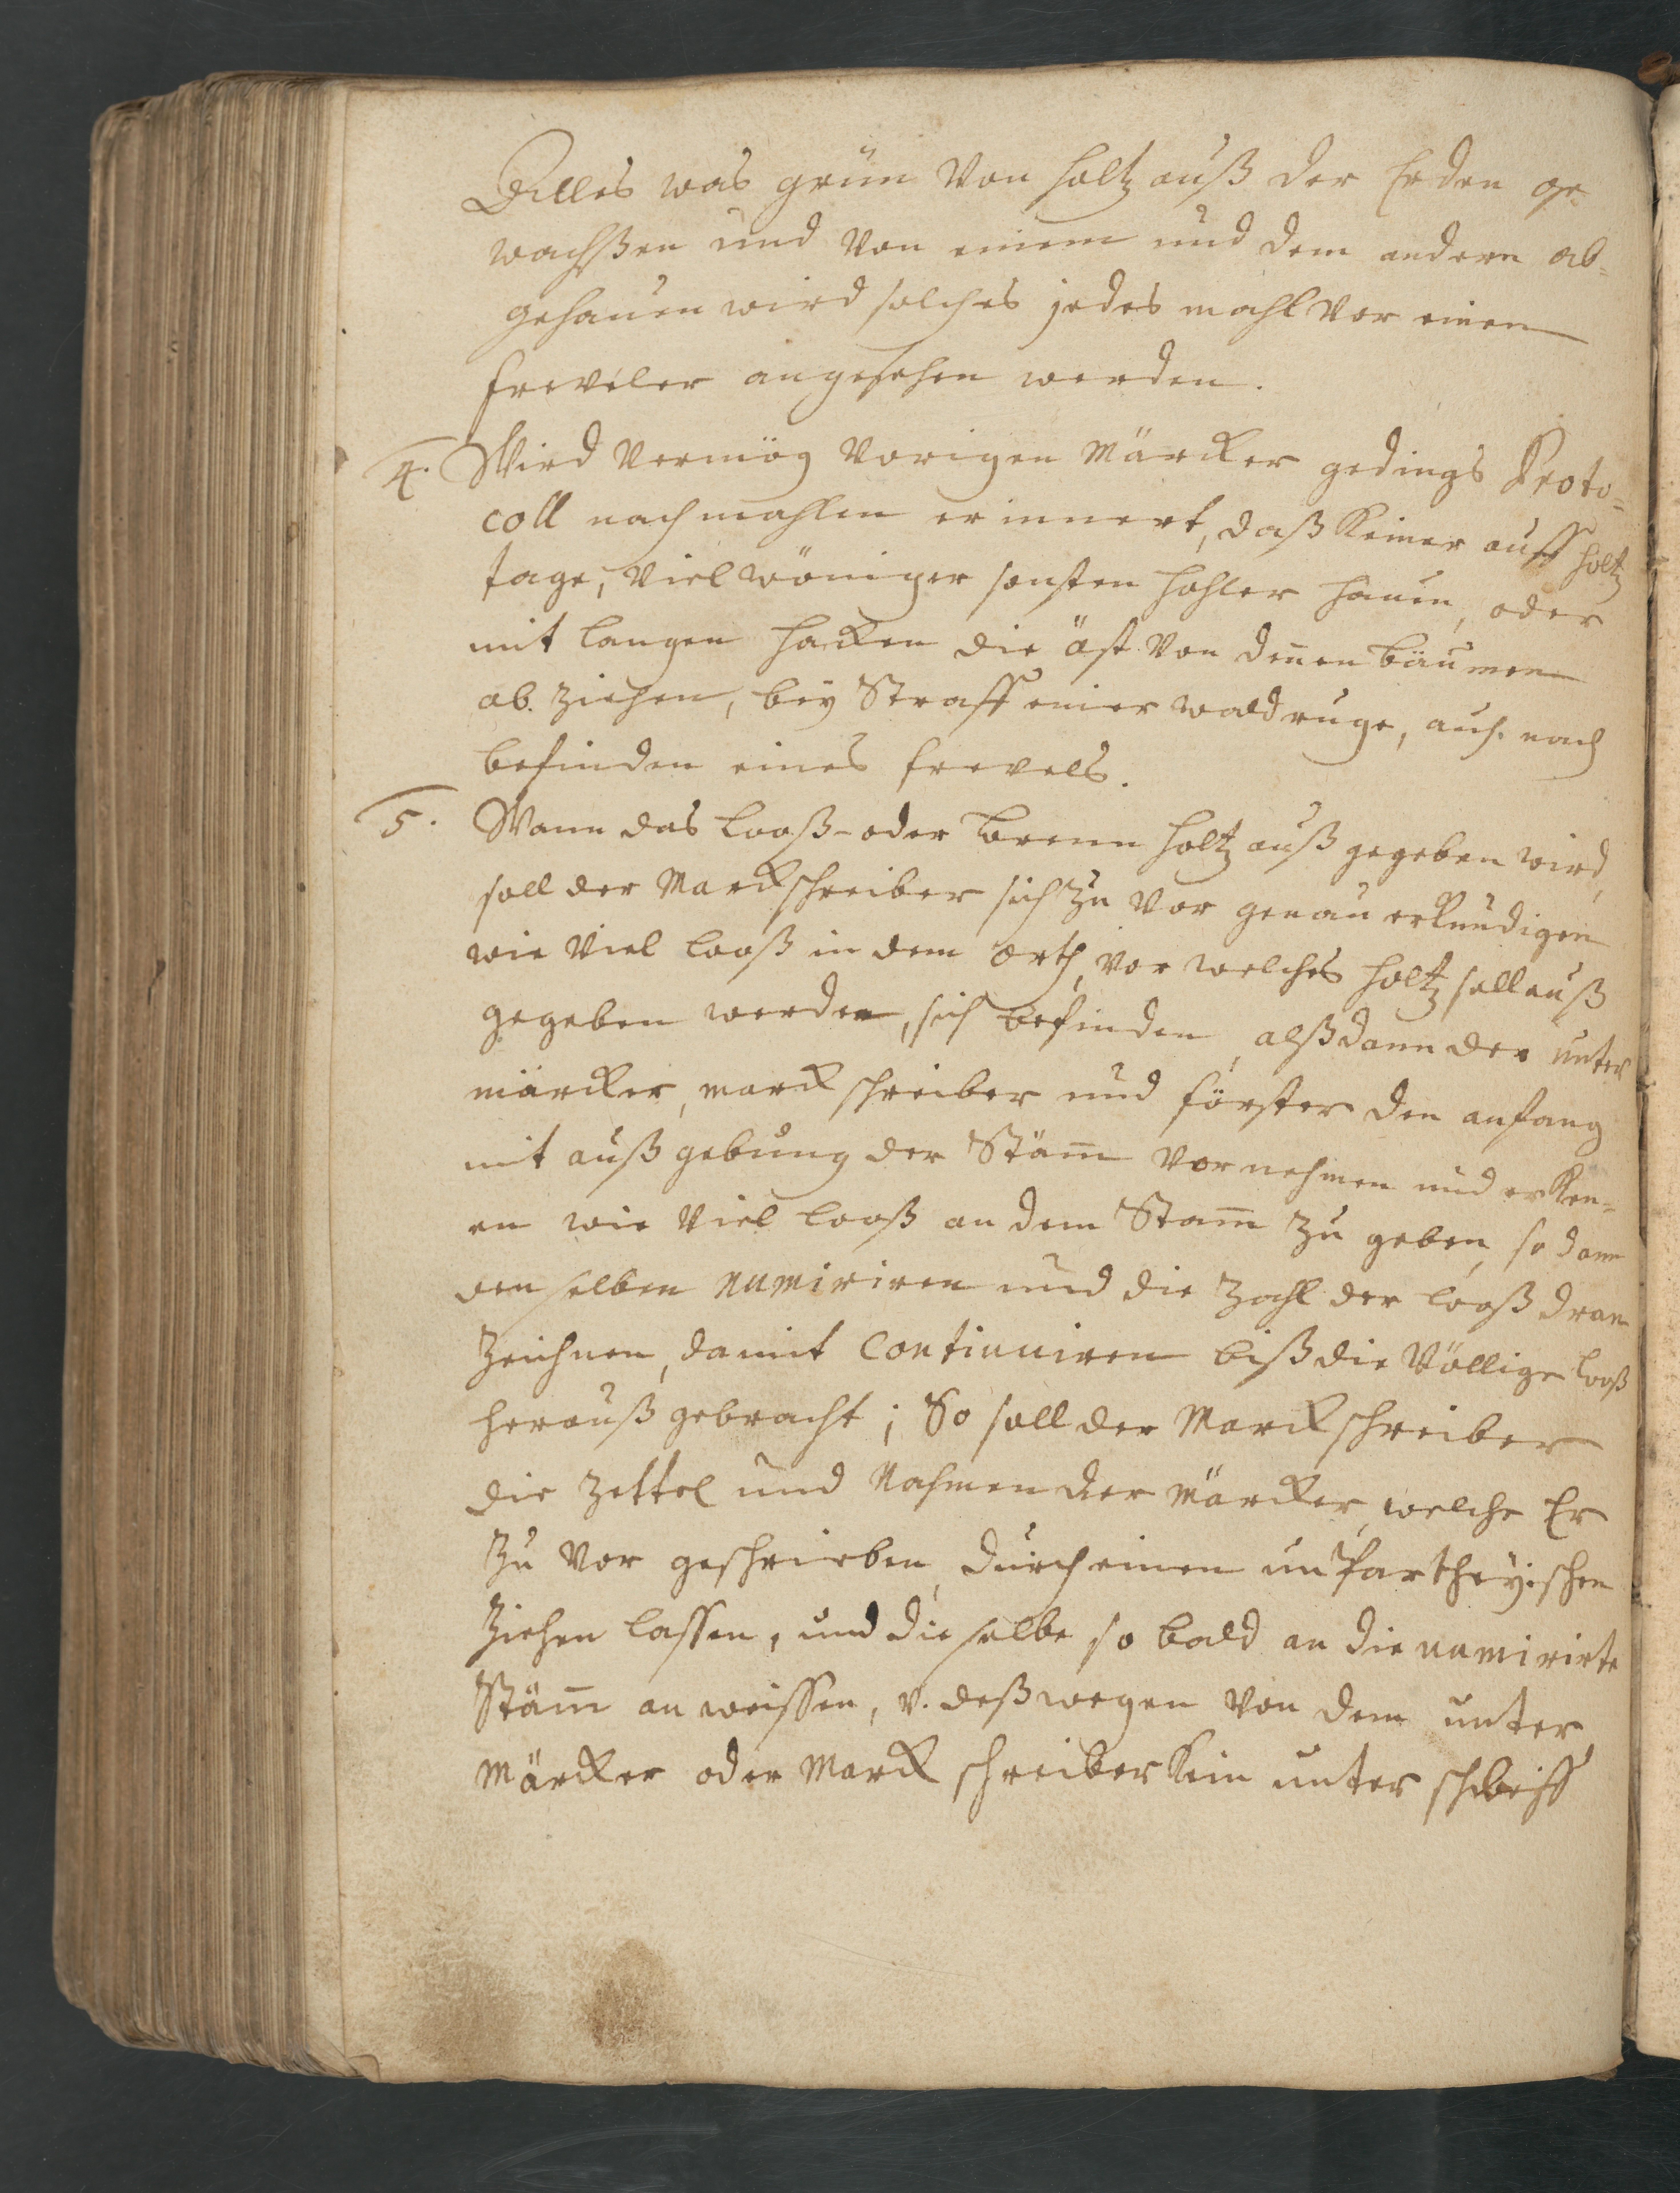 Alles was grün von holtz auß der Erden ge-
wachßen und von einem und dem andern ab-
gehauen wird solches jedes mahl vor einen
freveler angesehen werden.
4. Wird vermög vorigen Märcker gedings Proto-
coll nachmahlen erinnert, daß keiner auff holtz
tage, viel wöniger sonsten hohler hauen, oder
mit langen hacken die äst von denen bäumen
ab ziehen, bey Straff einer waldruge, auch nach
befinden eines frevels.
5. Wann das looß- oder brenn holtz auß gegeben wird,
soll der Marckschreiber sich zu vor genau erkundigen
wie viel looß in dem orth, vor welches holtz soll auß
gegeben werden, sich befinden, alßdann der unter
märcker, marck schreiber und förster den anfang
mit außgebung der Stäm̅ vor nehmen und erken-
en wie viel looß an dem Stam̅ zu geben, so dann
denselben numiriren und die Zahl der looß dran
Zeichnen, damit continuiren biß die völlige looß
herauß gebracht; So soll der Marckschreiber
die Zettel und Nahmen der Märcker, welche Er
zu vor geschrieben, durch einen unpartheyischen
Ziehen lassen, und dieselbe so bald an die numirirte
Stäm̅ an weissen, v. deßwegen von dem unter
Märcker oder Marck schreiber kein unter schleiff